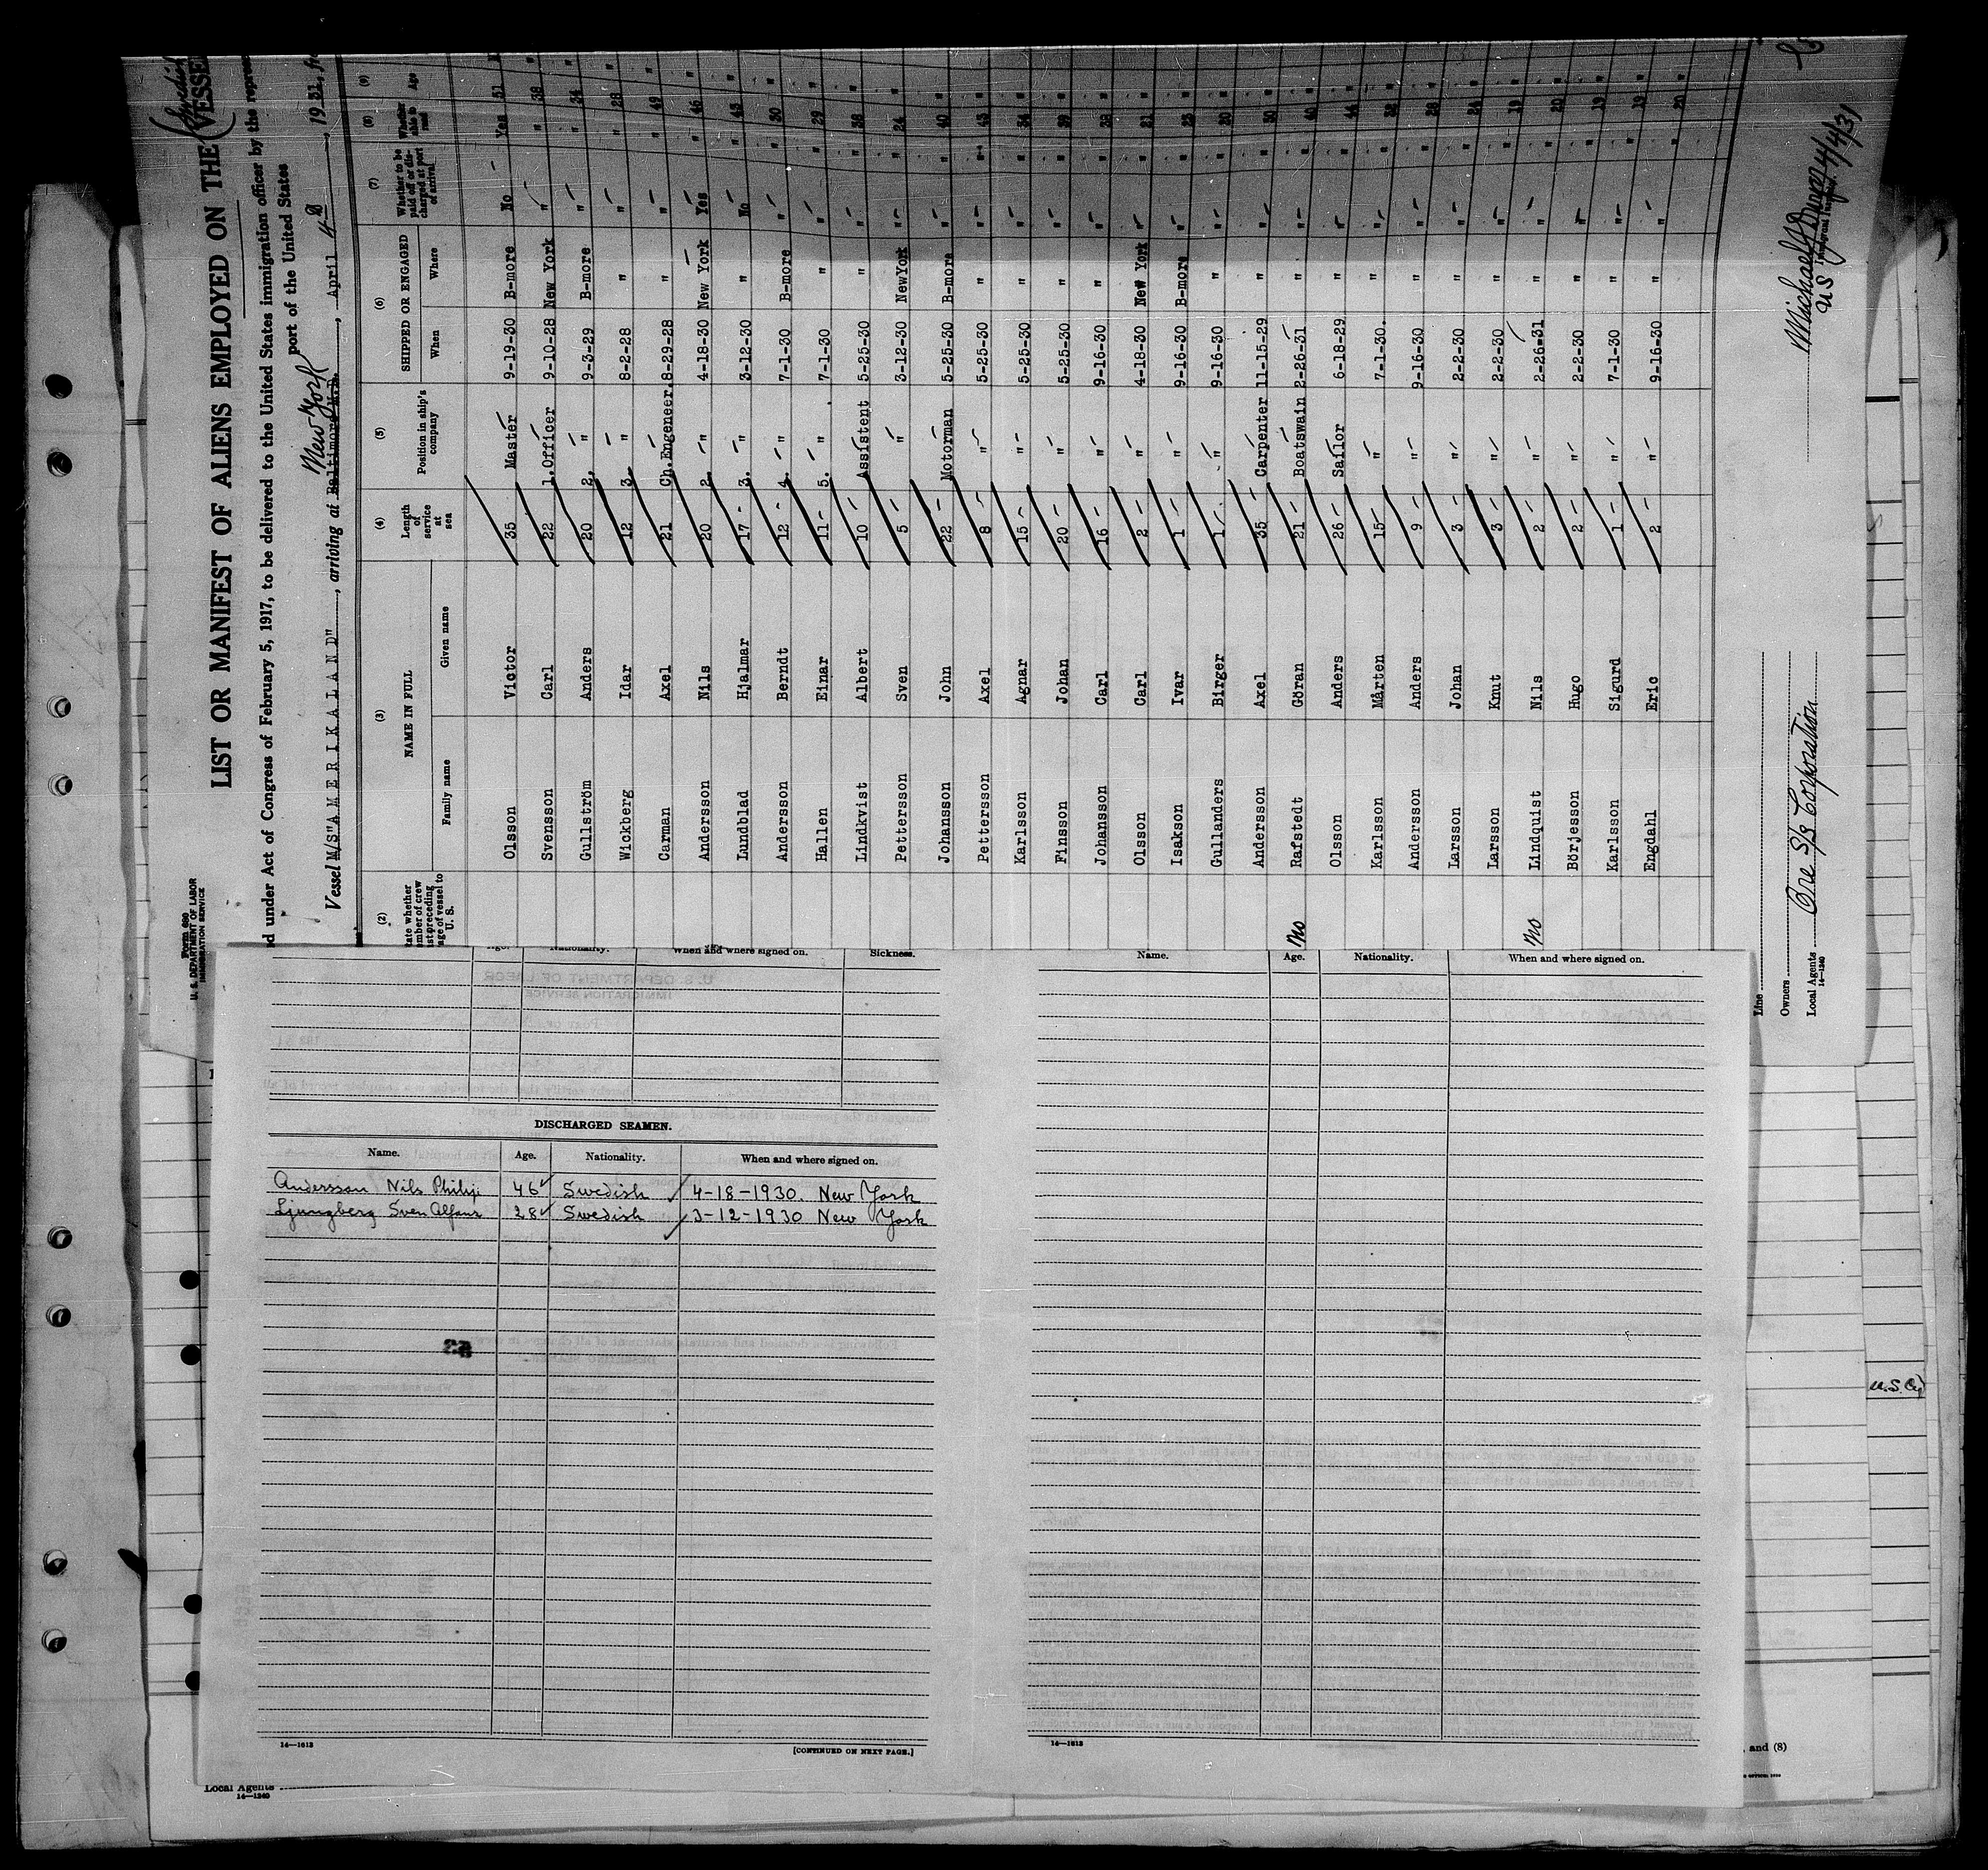 Form 680
U. S. DEPARTMENT OF LABOR
IMMIGRATION SERVICE
LIST OR MANIFEST OF ALIENS EMPLOYED ON THE VESSEL
under Act of Congress of February 5, 1917, to be delivered to the United States immigration officer by the
port of the United States
New York
Vessel M/S"AMERIKALAND", arriving at Baltimore Md., April 4th, 1931,
(2) (3) (4) (5) (6) (7) (8) (9)
NAME IN FULL
Family name Given name
Length of service at sea
Position in ship's company
SHIPPED OR ENGAGED
When Where
Whether to be paid off or discharged at port of arrival
Whether able to read
Age
Olsson Victor 35 Master 9-19-30 B-more No Yes 51
Svensson Carl 22 1.Officer 9-10-28 New York " " 38
Gullström Anders 20 2. " 9-3-29 B-more " " 34
Wickberg Idar 12 3. " 8-2-28 " " " 28
Carman Axel 21 Ch.Engeneer. 8-29-28 " " " 49
Andersson Nils 20 2. " 4-18-30 New York Yes " 46
Lundblad Hjalmar 17 3. " 3-12-30 " No " 43
Andersson Berndt 12 4. " 7-1-30 B-more " " 30
Hallen Einar 11 5. " 7-1-30 " " " 29
Lindkvist Albert 10 Assistent 5-25-30 " " " 38
Pettersson Sven 5 " 3-12-30 NewYork " " 24
Johansson John 22 Motorman 5-25-30 B-more " " 40
Pettersson Axel 8 " 5-25-30 " " " 43
Karlsson Agnar 15 " 5-25-30 " " " 34
Finsson Johan 20 " 5-25-30 " " " 39
Johansson Carl 16 " 9-16-30 " " " 38
Olsson Carl 2 " 4-18-30 New York " " 21
Isakson Ivar 1 " 9-16-30 B-more " " 23
Gullanders Birger 1 " 9-16-30 " " " 20
Andersson Axel 35 Carpenter 11-15-29 " " " 50
no Rafstedt Göran 21 Boatswain 2-26-31 " " " 40
Olsson Anders 26 Sailor 6-18-29 " " " 44
Karlsson Mårten 15 " 7-1-30. " " " 32
Andersson Anders 9 " 9-16-30 " " " 28
Larsson Johan 3 " 2-2-30 " " " 24
Larsson Knut 3 " 2-2-30 " " " 19
no Lindquist Nils 2 " 2-26-31 " " " 20
Börjesson Hugo 2 " 2-2-30 " " " 19
Karlsson Sigurd 1 " 7-1-30 " " " 19
Engdahl Eric 2 " 9-16-30 " " " 20
Line
Owners
Local Agents Ore S/S Corporation
14—1240
4/4/31
Age. Nationality. When and where signed on. Sickness.
DISCHARGED SEAMEN.
Name. Age. Nationality. When and where signed on.
Andersson Nils Philip 46 Swedish 4-18-1930. New York
Ljungberg Sven Alfons 28 Swedish 3-12-1930 New York
14—1613
[CONTINUED ON NEXT PAGE.]
Name. Age. Nationality. When and where signed on.
14—1613
Local Agents
14—1240
and (8)